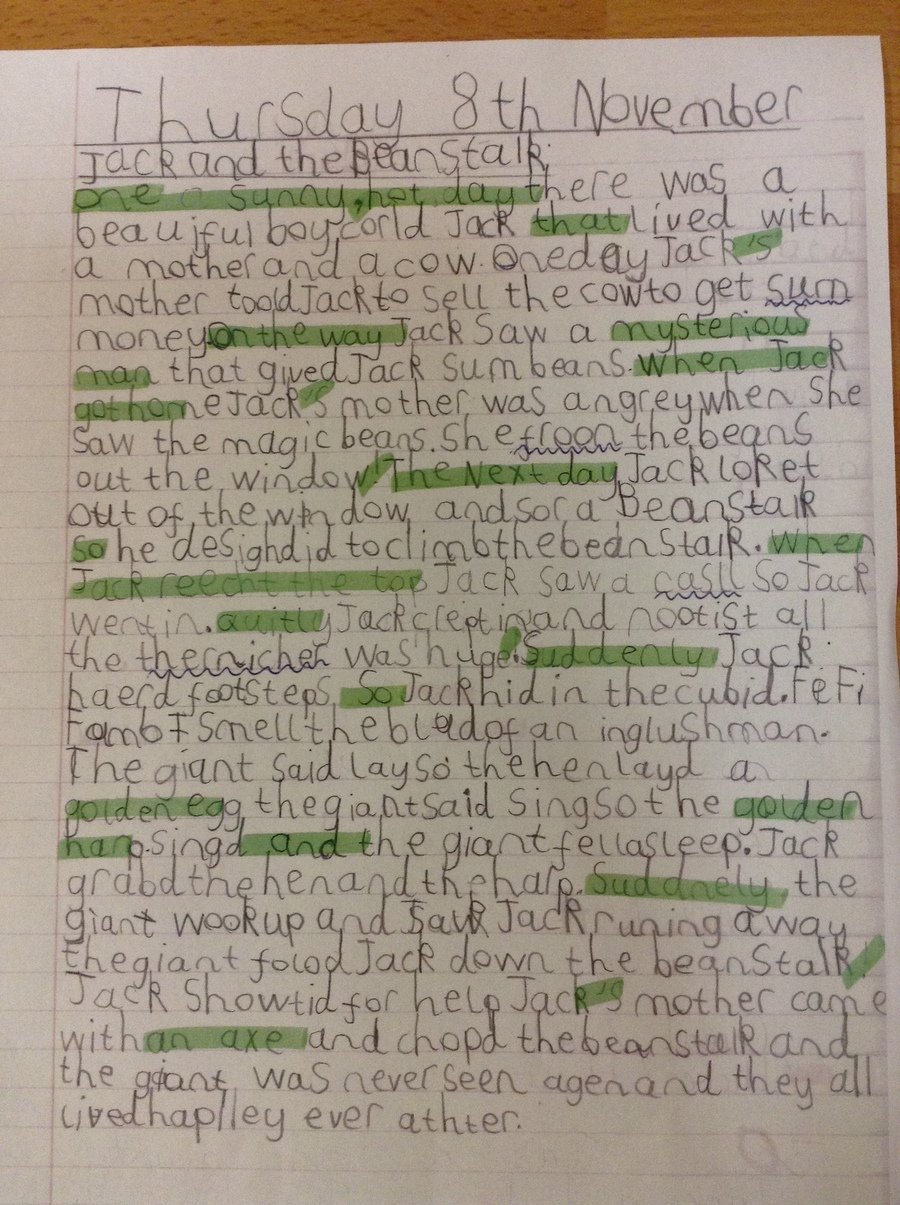 Thursday 8th November
Jack and the Beanstalk.
one a sunny, hot day there was a
beauiful boy, corld Jack that lived with
a mother and a cow. Oneday Jack's
mother toold Jack to sell the cow to get sum
money on the way Jack saw a mysterious
man that gived Jack sum beans. When Jack
got home Jack's mother was angrey when she
saw the magic beans. She froon the beans
out the window! The Next day Jack loket
out of the window and sor a Beanstalk
so he desighdid to climb the beanstalk. When
Jack reecht the top Jack saw a casll so Jack
went in. quitly Jack clept in and nootist all
the was huge. Suddenly Jack
haerd footsteps. So Jack hid in the cubid. Fe Fi
Fo I smell the blad of an inglushman.
The giant said lay so the hen layd a
golden egg the giant said sing so the golden
harp. singd and the giant fell asleep. Jack
grabd the hen and the harp. Suddnely the
giant wook up and saw Jack runing away
the giant folod Jack down the beanstalk!
Jack showtid for help Jack's mother came
with an axe and chopd the beanstalk and
the giant was never seen agen and they all
lived haplley ever athter.